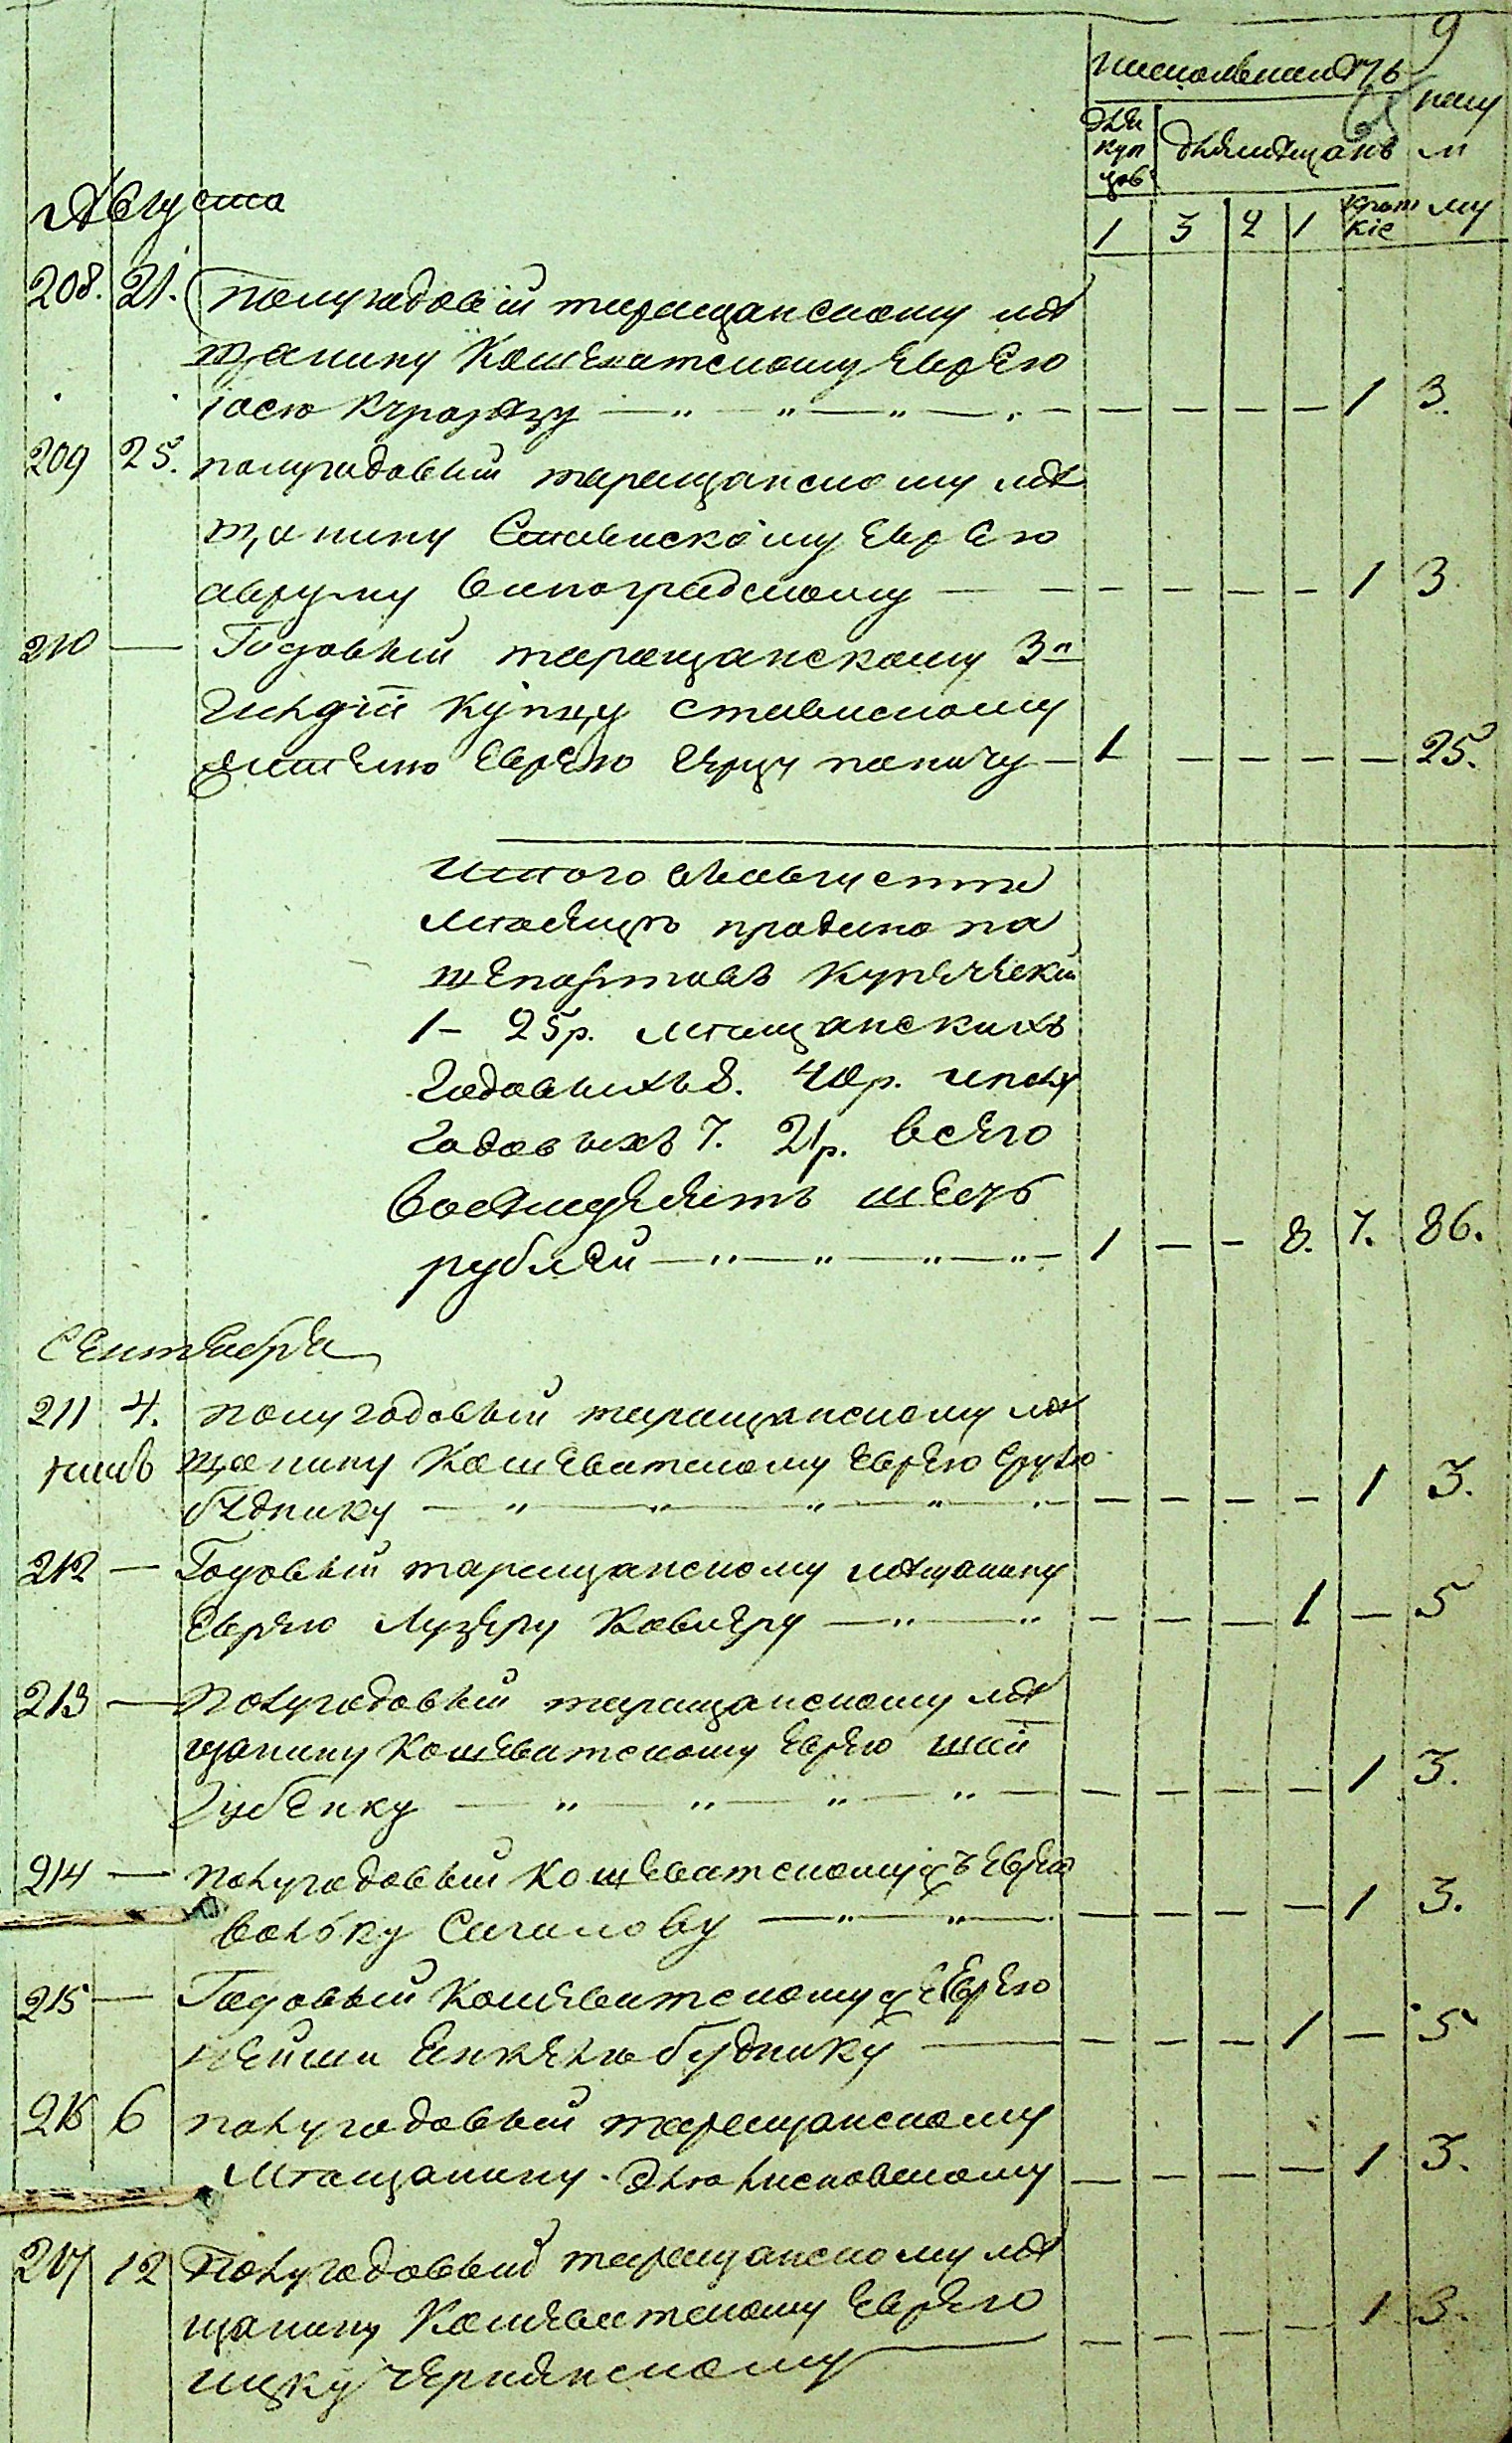 9
для куп цовъ
для мѣщанъ
1 3 2 1 крат кіе
Августа
208. 21. полугодовый таращанскому мѣ
щанину Кошеватскому Еврею
Іосю — „ — „ — „ — 1 3.
209 25. полугодовый таращанскому мѣ
щанину Ставискому Еврею
авруму виноградскому — — — — — — 1 3
210 — Годовый таращанскому 3й
гильдіи купцу ставискому
жителю Еврею герцу паничу — 1 — — — — 25.
Итого въ августѣ
мѣсяцѣ продано па
шепортовъ купеческій
1 – 25р. мѣщанскихъ
годовыхъ 8. 40р. иполу
годовыхъ 7. 21р. всего
восемдесятъ шесть
рублей — „ — „ — „ — „ — 1 — — 8. 7. 86.
Сентября
211 4. полугодовый таращанскому мѣ
щанину Кошеватскому Еврею
буднику — „ — „ — „ — „ — — — — — 1 3.
212 — Годовый таращанскому мѣщанину
Еврею Лузеру Ковлеру — „ — „ — — — 1 — 5
213 — полугодовый таращанскому мѣ
щанину Кошеватскому Еврею шаи
Зубенку — „ — „ — „ — „ — — — — — 1 3.
214 — полугодовый Кошеватскому Еврею
волбку Сигалову — „ — „ — — — — — 1 3.
215 — Годовый Кошеватскому Еврею
Енкелю буднику — — — — 1 — 5
216 6 полугодовый таращанскому
мѣщанину . Элю лисновскому — — — — 1 3.
217 12 Полугодовый таращанскому мѣ
щанину Кошеватскому Еврею
ицку чернянскому — — — — — 1 3.